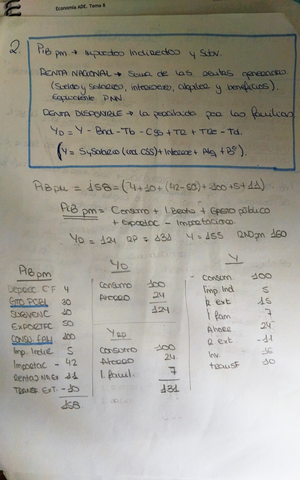 Economía ADE. Tema 8
2.
PIB pm → Impuestos Indirectos y Subv.
RENTA NACIONAL → Suma de las rentas generadas
(Sueldo y salarios, intereses, alquiler y beneficios).
Equivalente PNN
RENTA DISPONIBLE → la percibida por las familias
YD = Y - Bnd - Tb - Cgs + TR + TRE - Td.
PIB pm = 158 =
PIB pm = Consumo + I. Bruta + Gasto público
+ exportac - Importaciones.
YD = 124 RP = 131 Y = 155 RND pm 160
PIB pm
Deprec CF 4
GTO PCBL 30
SUBVENC 10
EXPORTAC 50
CONSU FAM 100
Imp. Indire 5
Importac - 42
Rentas N Ex 11
TRANSF. EXT. - 10
158
YD
Consumo 100
Ahorro 24
124
Consumo 100
Ahorro 24
I. famil. 7
131
Y
Consum 100
Imp. Ind 5
R ext 15
I fam 7
Ahorr 24
R ext -11
Inv.
transf 10